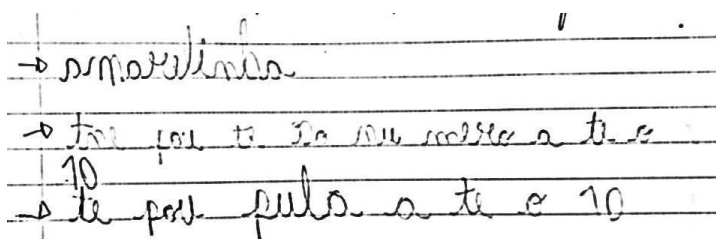 → amarelinha
→ tre que te Do nu mero a te o
10
→ te que pula a te o 10